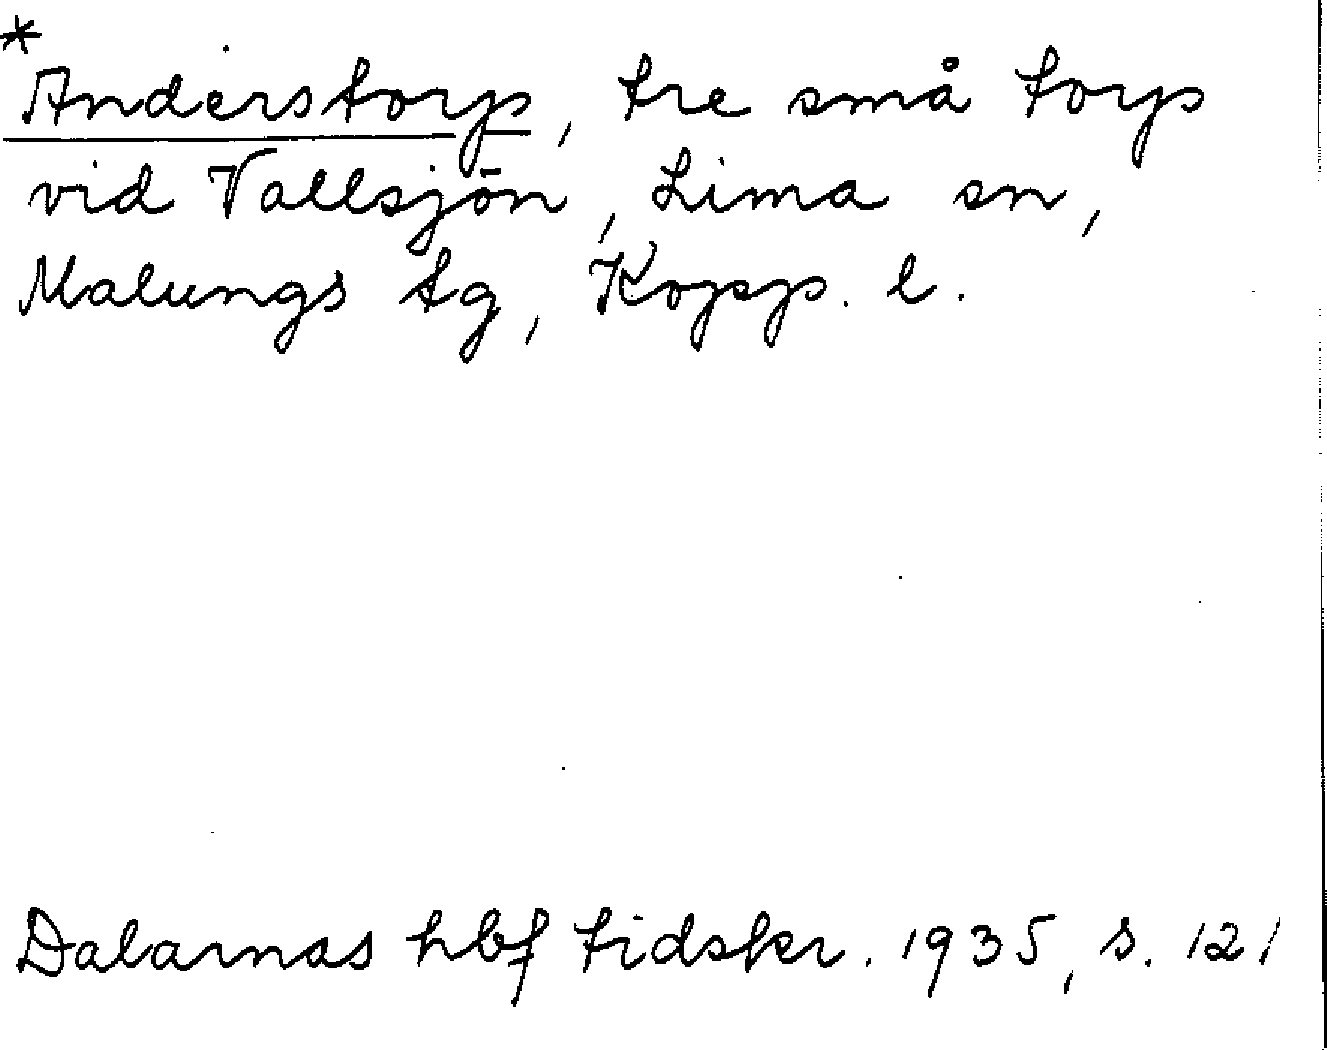 *
Anderstorp, tre små torp
vid Vallsjön, Lima sn,
Malungs tg, Kopp. l.
Dalarnas hbf tidskr. 1935, s. 121